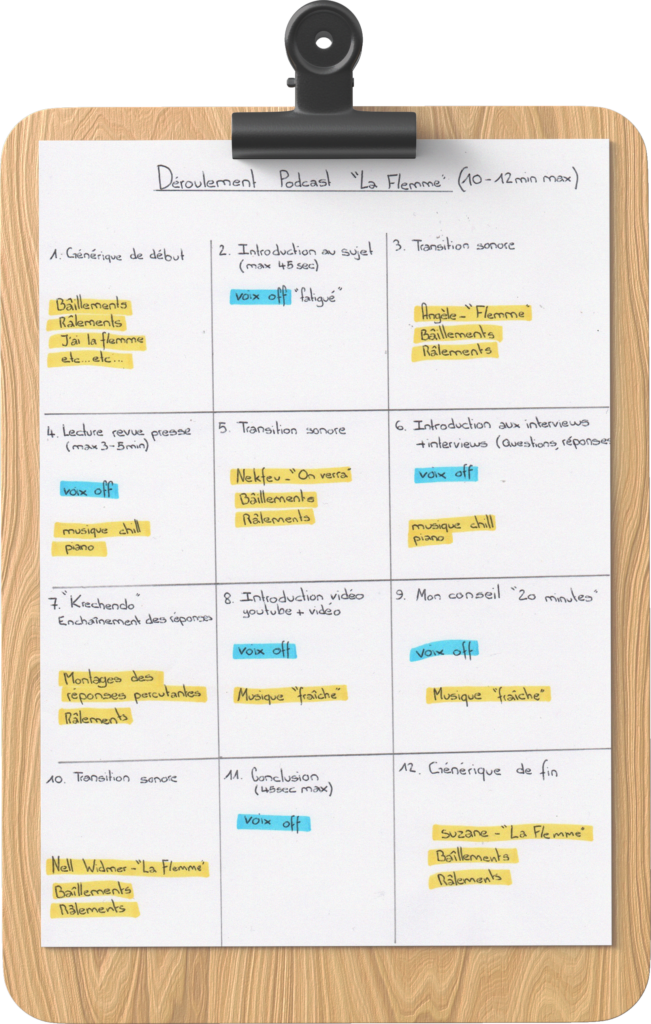 Déroulement Podcast "La Flemme" (10-12min max)
1. Générique de début
Bâillements
Râlements
J'ai la flemme
etc...etc...
2. Introduction au sujet
(max 45sec)
voix off "fatigué"
3. Transition sonore
Angèle - "Flemme"
Bâillements
Râlements
4. Lecture revue presse
(max 3-5min)
voix off
musique chill
piano
5. Transition sonore
Nekfeu - "On verra"
Bâillements
Râlements
6. Introduction aux interviews
+interviews (Questions, réponses
voix off
musique chill
piano
7. "Krechendo"
Enchaînement des réponses
Montages des
réponses percutantes
Râlements
8. Introduction vidéo
youtube + vidéo
voix off
Musique "fraîche"
9. Mon conseil "20 minutes"
voix off
Musique "fraîche"
10. Transition sonore
Nell Widmer - "La Flemme"
Baîllements
Râlements
11. Conclusion
(45sec max)
voix off
12. Générique de fin
Suzane - "La Flemme"
Baîllements
Râlements